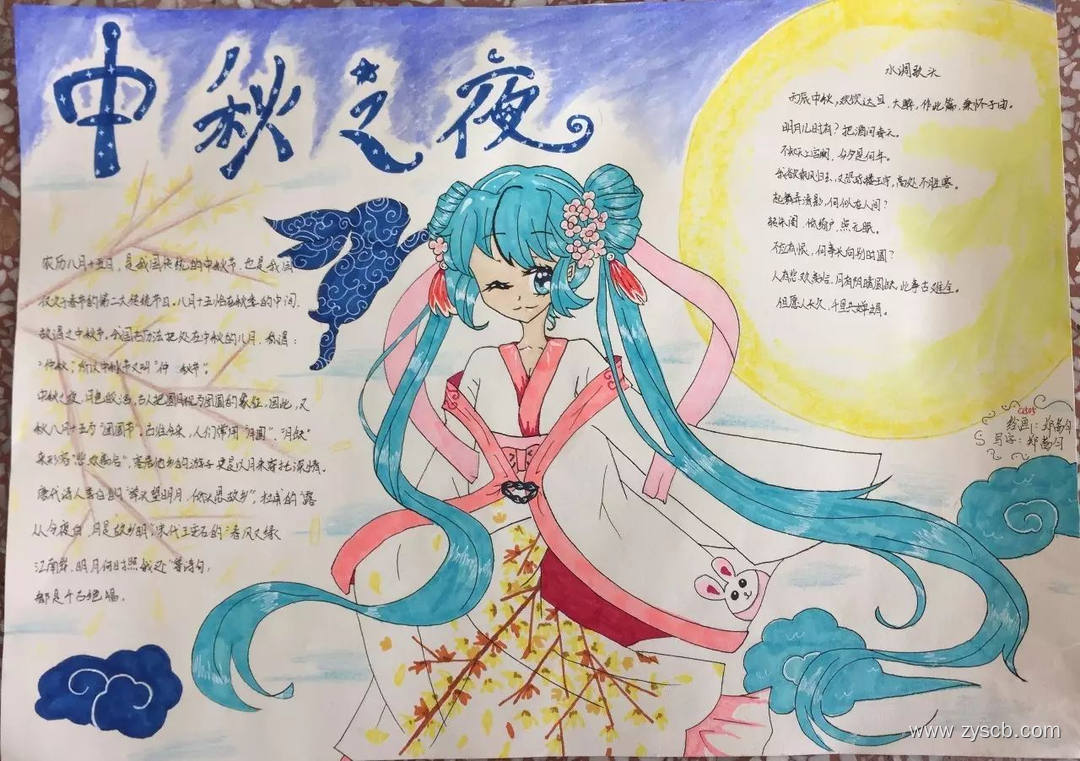 中秋之夜
水调歌头
丙辰中秋,欢饮达旦,大醉,作此篇,兼怀子由。
明月几时有?把酒问青天。
不知天上宫阙,今夕是何年。
我欲乘风归去,又恐琼楼玉宇,高处不胜寒。
起舞弄清影,何似在人间?
转朱阁,低绮户,照无眠。
不应有恨,何事长向别时圆?
人有悲欢离合,月有阴晴圆缺,此事古难全。
但愿人长久,千里共婵娟。
农历八月十五日,是我国传统的中秋节,也是我国
仅次于春节的第二大传统节日。八月十五恰在秋季的中间,
故谓之中秋节。我国古历法把处在中秋的八月,称谓:
"仲秋",所以中秋节又叫"仲 秋节"。
中秋之夜,月色皎洁,古人把圆月视为团圆的象征,因此,又
秋八月十五为"团圆节"。古往今来,人们常用"月圆"、"月缺"
来形容"悲欢离合",客居他乡的游子更是以月来寄托深情。
唐代诗人李白的"举头望明月,低头思故乡",杜甫的"露
从今夜白,月是故乡明",宋代王安石的"春风又绿
江南岸,明月何时照我还"等诗句,
都是千古绝唱。
绘画:
写字:
www.zyscb.com